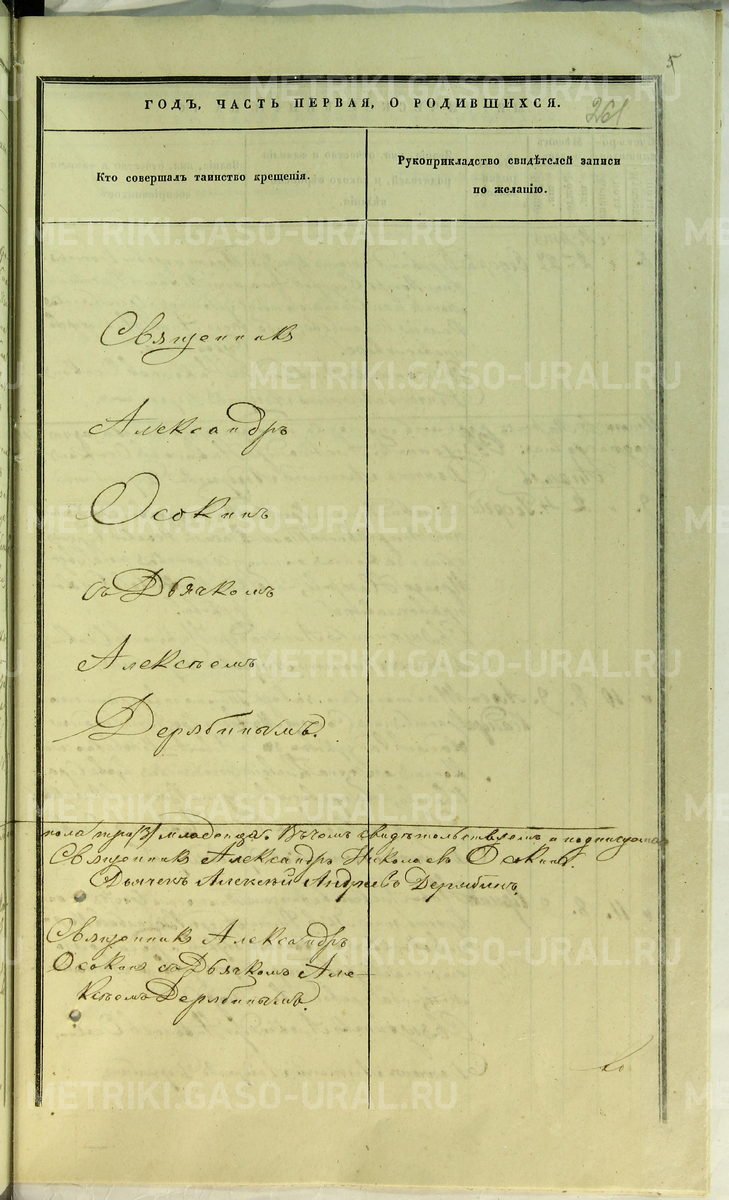 5
ГОДЪ, ЧАСТЬ ПЕРВАЯ, О РОДИВШИХСЯ.
261
Кто совершалъ таинство крещенія.
Рукоприкладство свидѣтелей записи
по желанію.
Священникъ
Александръ
Осокинъ
съ Дьячкомъ
Алексѣемъ
Дерябинымъ.
пола три /3/ младенца. Въ чемъ свидѣтельствуемъ и подписуемся
Священникъ Александръ Николаевъ Осокинъ.
Дьячекъ Алексѣй Андреевъ Дерябинъ.
Священникъ Александръ
Осокинъ съ Дьячкомъ Але-
ксѣемъ Дерябинымъ.
METRIKI.GASO-URAL.RU